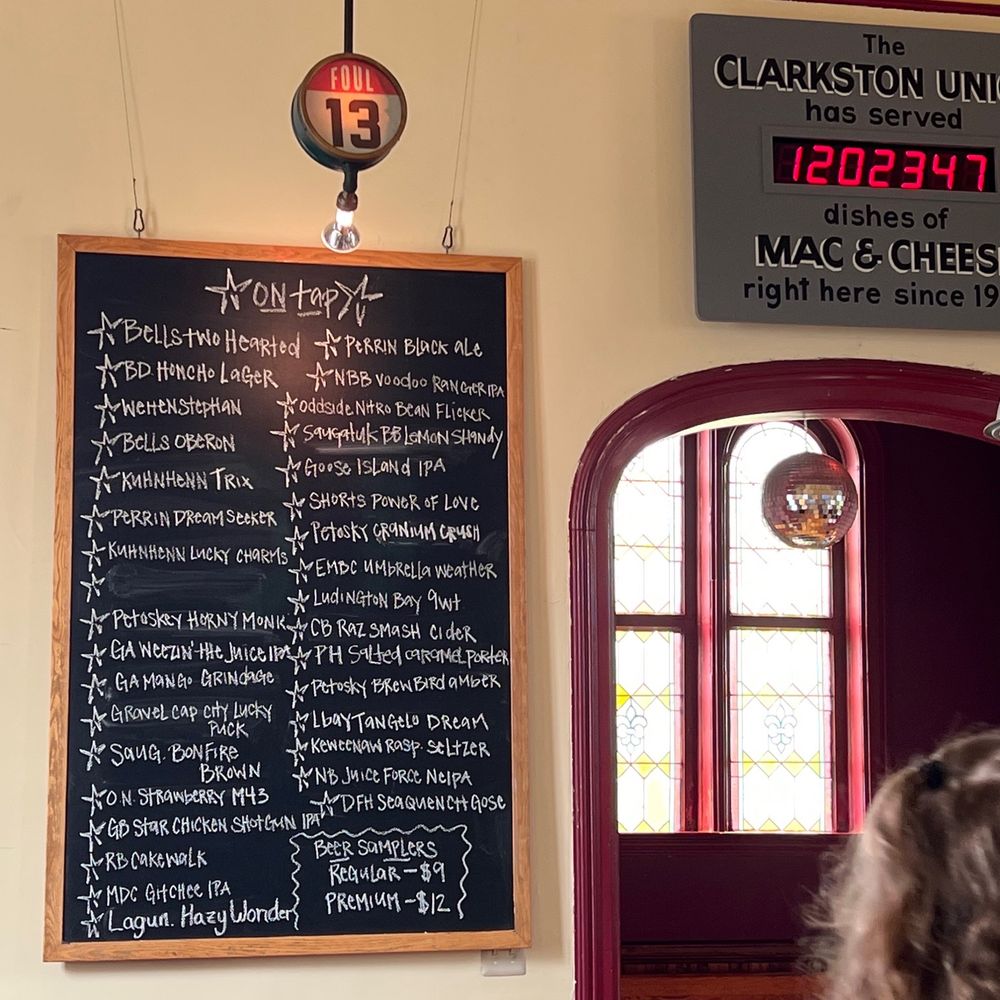 FOUL
13
The
CLARKSTON UNI
has served
1202347
dishes of
MAC & CHEES
right here since 19
ON tap
Bells Two Hearted
BD. Honcho Lager
Weihenstephan
Bells Oberon
Kuhnhenn Trix
Perrin Dream Seeker
Kuhnhenn Lucky Charms
Petoskey Horny Monk
GA Weezin' the Juice IPA
GA Mango Grindage
Gravel Cap City Lucky
Puck
Saug. Bonfire
Brown
O.N. Strawberry M43
GB Star Chicken Shotgun IPA
RB Cakewalk
MDC Gitchee IPA
Lagun. Hazy Wonder
Perrin Black Ale
NBB Voodoo Ranger IPA
Oddside Nitro Bean Flicker
Saugatuk BB Lemon Shandy
Goose Island IPA
Shorts Power of Love
Petosky Cranium Crush
EMBC Umbrella Weather
Ludington Bay 9wt
CB Raz Smash Cider
PH Salted Caramel Porter
Petosky Brew Bird Amber
Lbay Tangelo Dream
Keweenaw Rasp. Seltzer
NB Juice Force NeIPA
DFH SeaQuench Gose
Beer Samplers
Regular - $9
Premium - $12